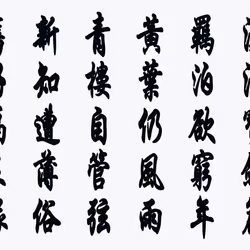 羈泊欲窮年
黃葉仍風雨
青樓自管弦
新知遭薄俗